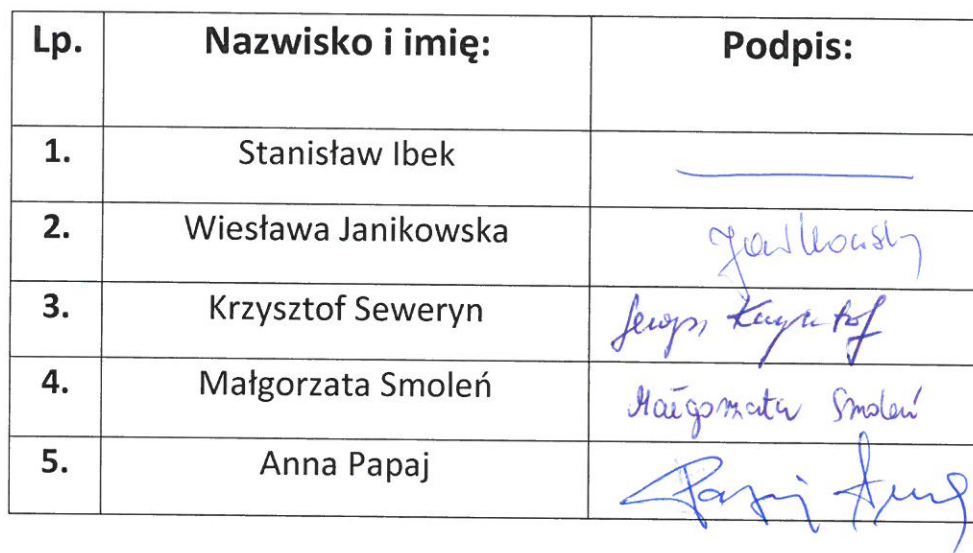 Lp. Nazwisko i imię: Podpis:
1. Stanisław Ibek
2. Wiesława Janikowska
3. Krzysztof Seweryn Krzysztof
4. Małgorzata Smoleń Małgorzata Smoleń
5. Anna Papaj Papaj